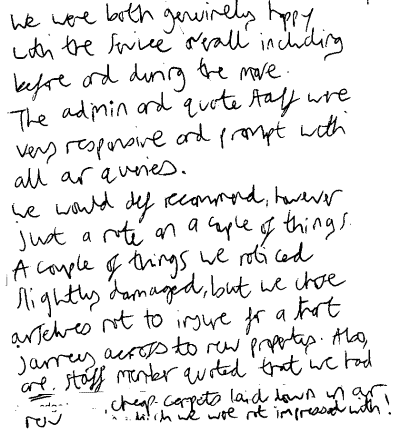 We were both genuinely happy
with the service overall including
before and during the move.
The admin and quote staff were
very responsive and prompt with
all our queries.
We would def recommend, however
just a note on a couple of things.
A couple of things we noticed
slightly damaged, but we chose
ourselves not to insure for a short
journey across to new property. Also,
one staff member quoted that we had
cheap carpets laid down in our
new which we were not impressed with!